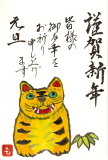 謹賀新年
皆様の
御多幸を
お祈り
申し上げ
ます
元旦